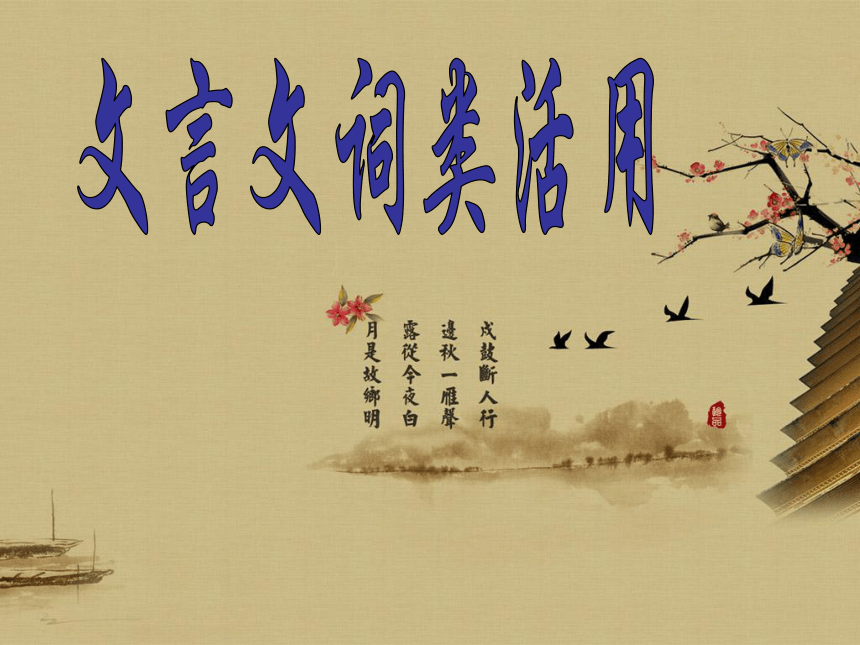 文言文词类活用
戍鼓斷人行
邊秋一雁聲
露從今夜白
月是故鄉明